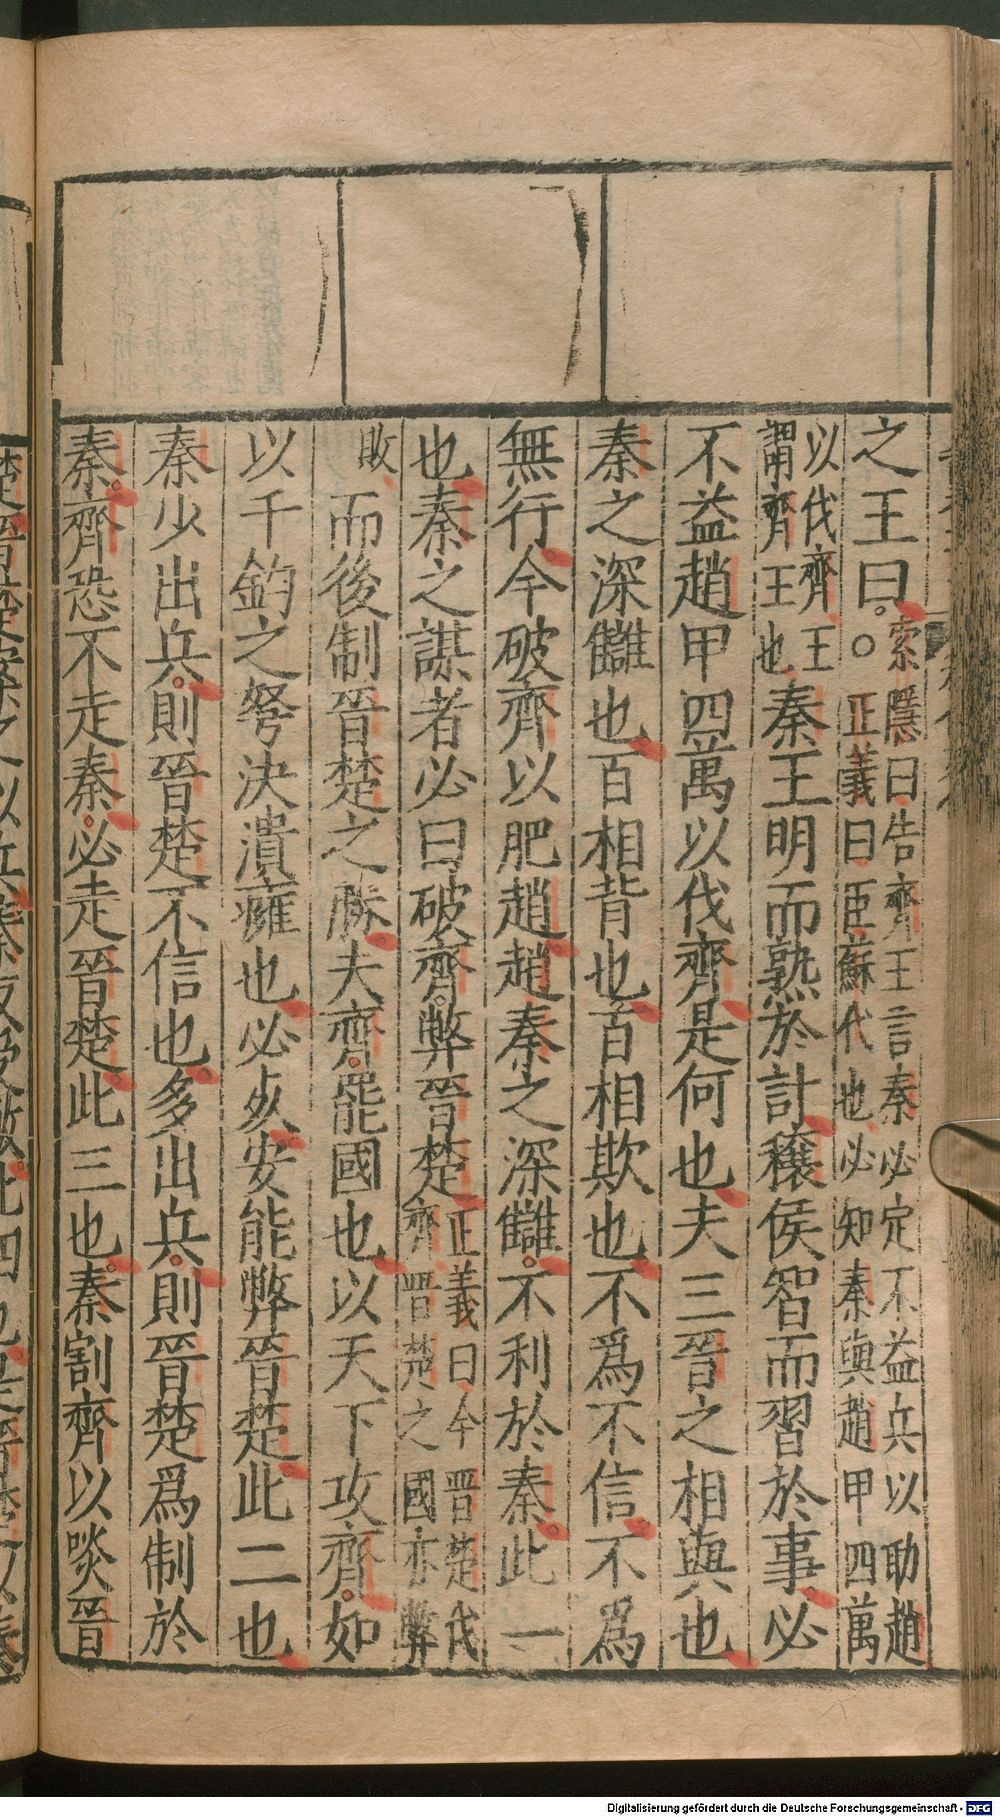 之王曰。索隱曰告齊王言秦必定不益兵以助趙〇正義曰臣蘇代也必知秦與趙甲四萬
以伐齊王謂齊王也秦王明而熟於計穰侯智而習於事必
不益趙甲四萬以伐齊是何也夫三晉之相與也
秦之深讎也百相背也百相欺也不爲不信不爲
無行今破齊以肥趙趙秦之深讎。不利於秦此一
也秦之謀者必曰破齊弊晉楚正義曰今晉楚伐齊晉楚之國亦弊
敗而後制晉楚之勝夫齊罷國也以天下攻齊。如
以千鈞之弩決潰癰也必死安能弊晉楚此二也
秦少出兵。則晉楚不信也多出兵。則晉楚爲制於
秦。齊恐不走秦。必走晉楚。此三也。秦割齊以啖晉
Digitalisierung gefördert durch die Deutsche Forschungsgemeinschaft - DFG